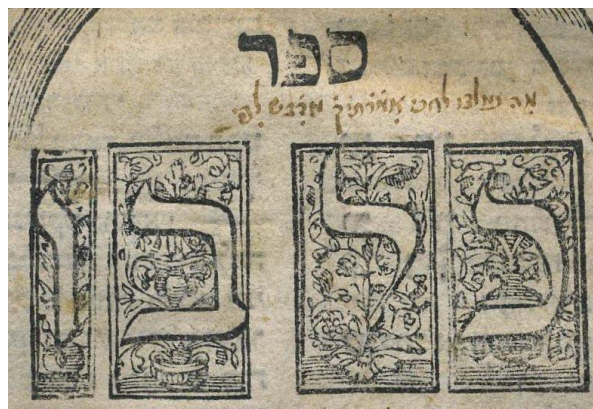 ספר
מַה נמלצו לחכי אמרתיך מדבש לפי
כל בו